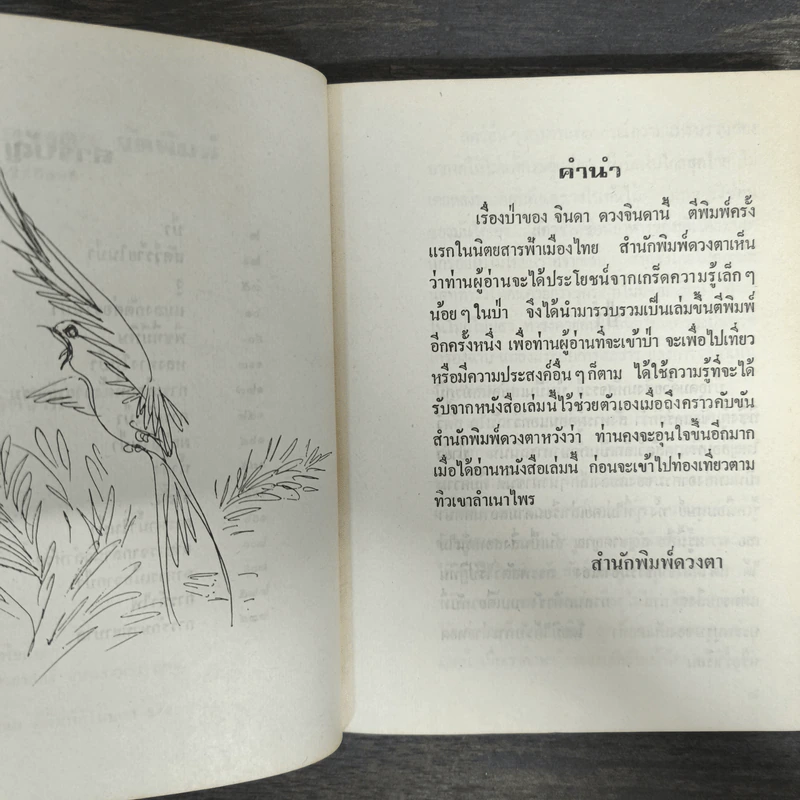 คำนำ
เรื่องป่าของ จินดา ดวงจินดานี้ ตีพิมพ์ครั้ง
แรกในนิตยสารฟ้าเมืองไทย สำนักพิมพ์ดวงตาเห็น
ว่าท่านผู้อ่านจะได้ประโยชน์จากเกร็ดความรู้เล็กๆ
น้อยๆในป่า จึงได้นำมารวบรวมเป็นเล่มขึ้นตีพิมพ์
อีกครั้งหนึ่ง เพื่อท่านผู้อ่านที่จะเข้าป่า จะเพื่อไปเที่ยว
หรือมีความประสงค์อื่นๆก็ตาม ได้ใช้ความรู้ที่จะได้
รับจากหนังสือเล่มนี้ไว้ช่วยตัวเองเมื่อถึงคราวคับขัน
สำนักพิมพ์ดวงตาหวังว่า ท่านคงจะอุ่นใจขึ้นอีกมาก
เมื่อได้อ่านหนังสือเล่มนี้ ก่อนจะเข้าไปท่องเที่ยวตาม
ทิวเขาลำเนาไพร
สำนักพิมพ์ดวงตา